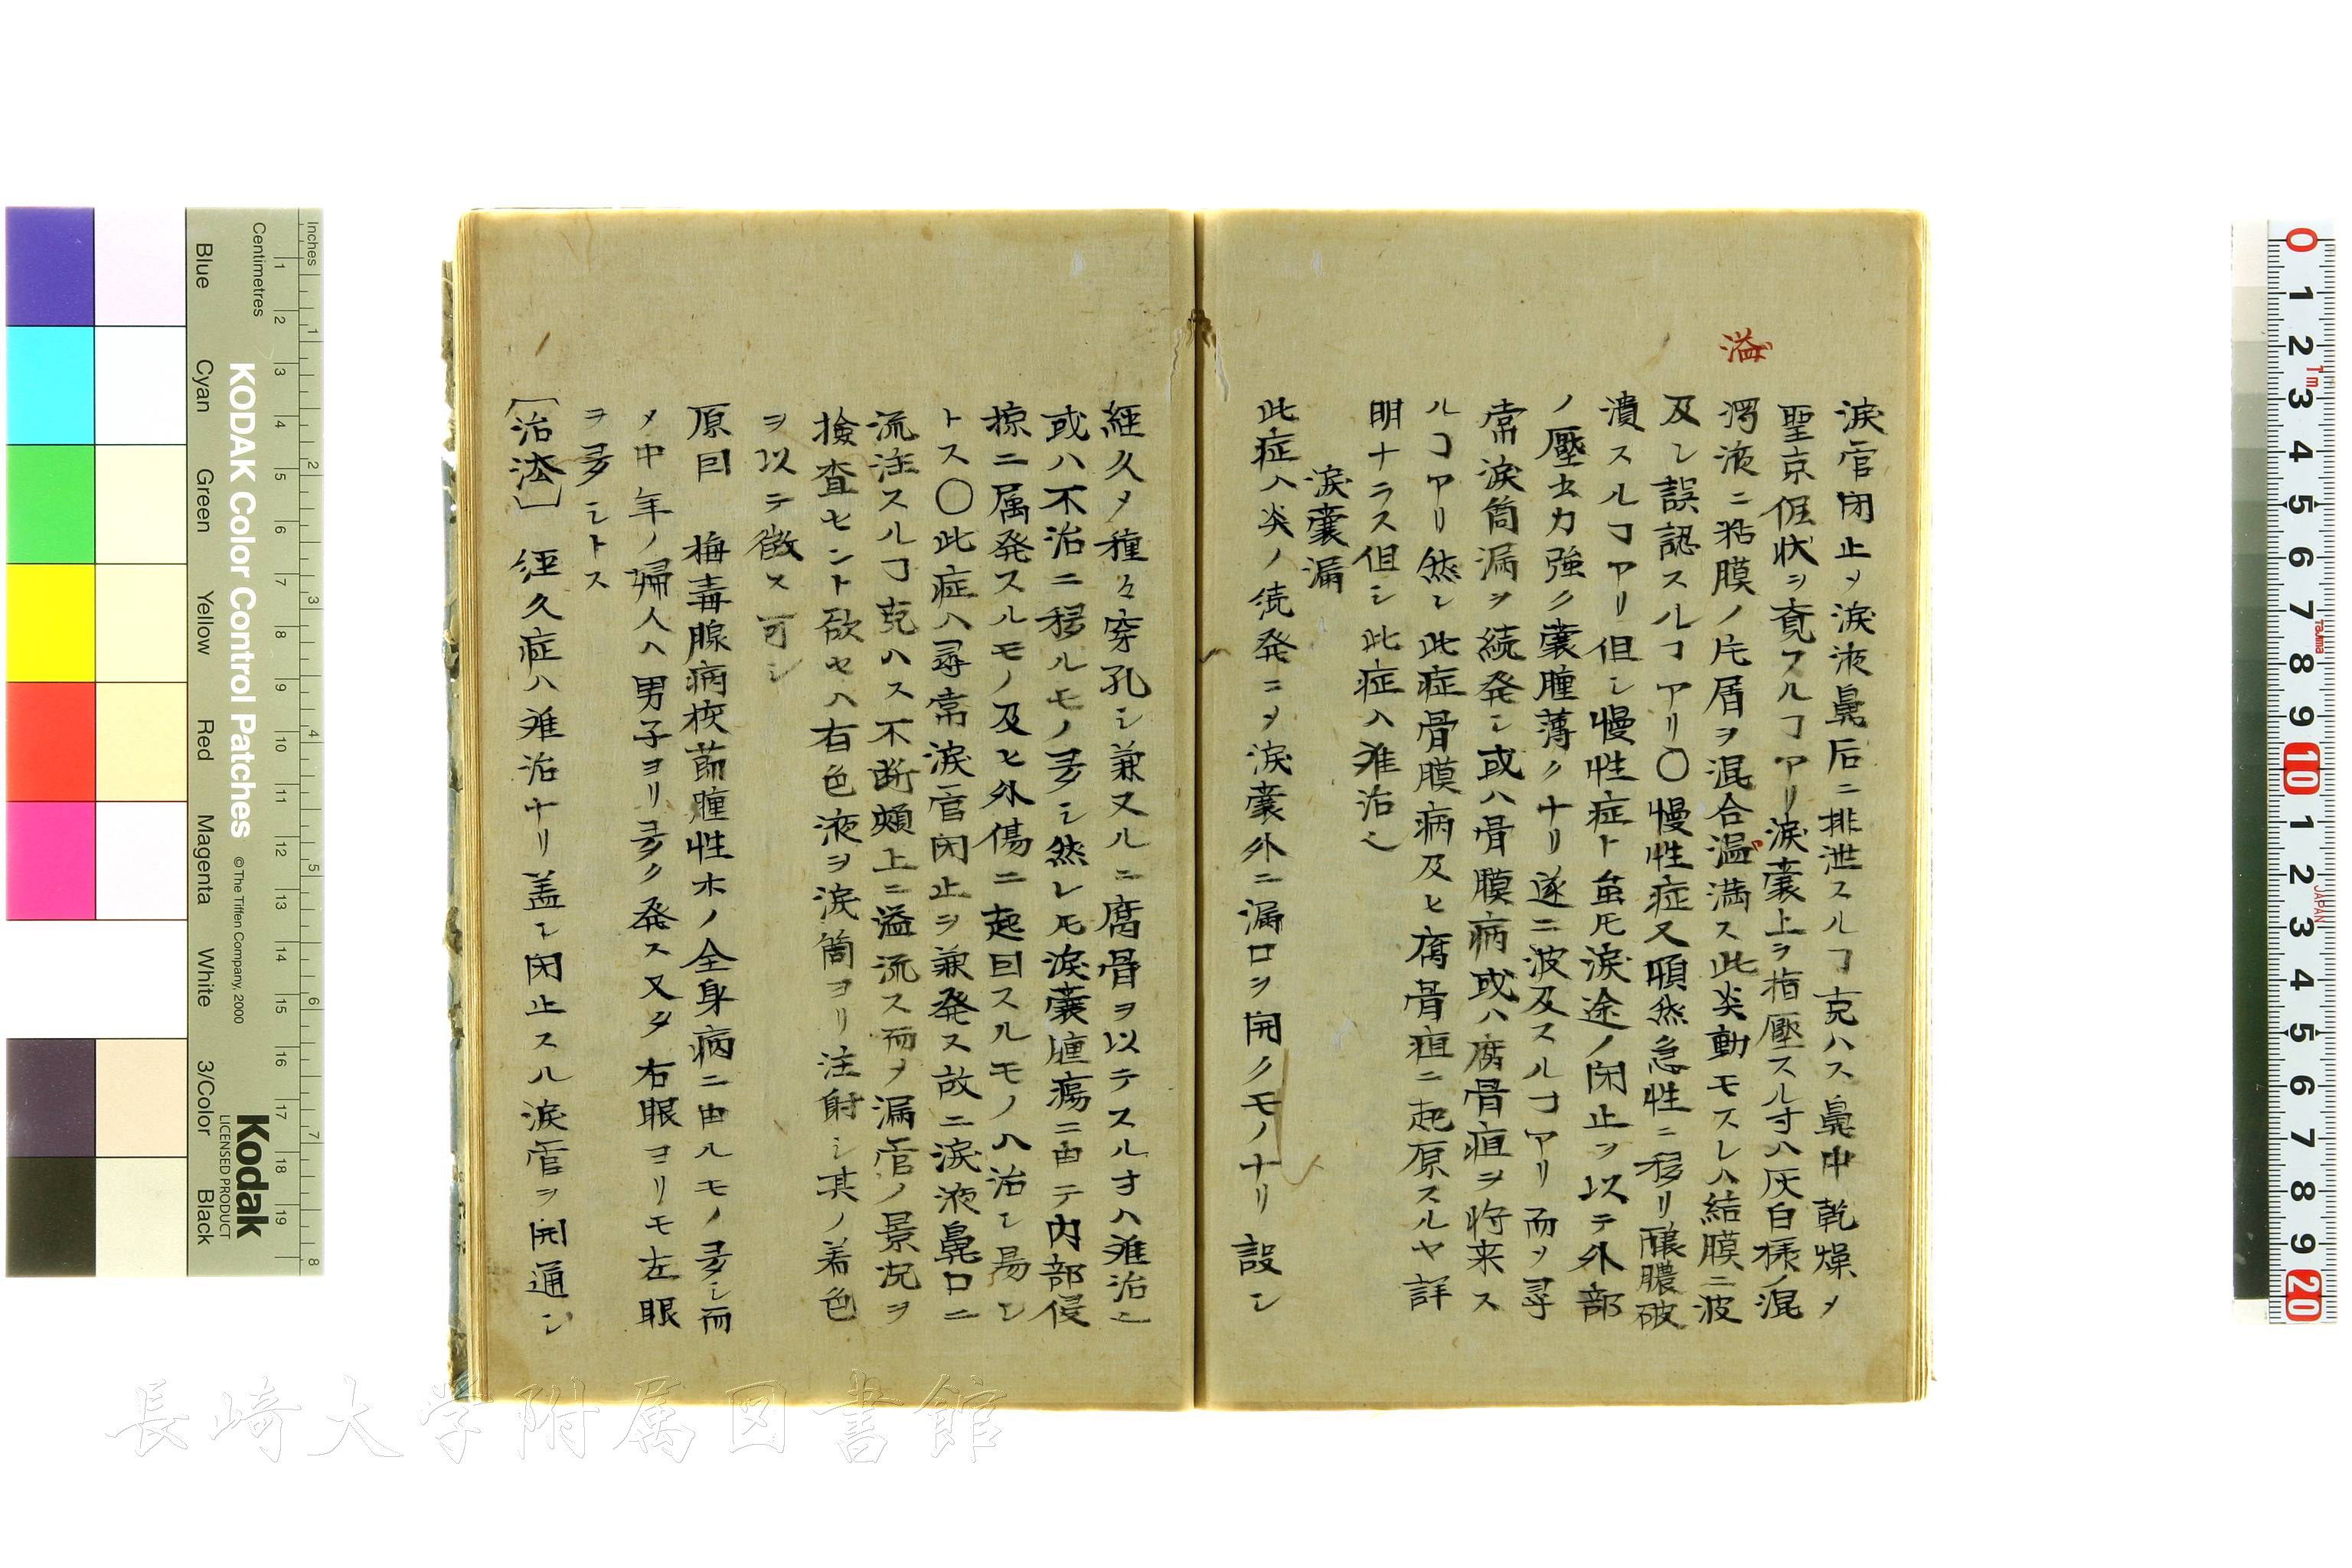 溢
涙管閉止メ涙液鼻后ニ排泄スルヿ克ハス鼻中乾燥メ
堅京倔状ヲ覚フルヿアリ涙嚢上ヲ指壓スル寸ハ灰白様ノ混
濁液ニ粘膜ノ片屑ヲ混合温満ス此炎動モスレハ結膜ニ波
及シ誤認スルヿアリ〇慢性症又頓然急性ニ移リ醸膿破
潰スルヿアリ但シ慢性症ト虽𪜈涙途ノ閉止ヲ以テ外部
ノ壓出力強ク嚢腫薄クナリ遂ニ波及スルヿアリ而ヲ尋
常涙筒漏ヲ続発シ或ハ骨膜病或ハ腐骨疽ヲ将来ス
ルヿアリ然レ此症骨膜病及ヒ腐骨疽ニ起原スルヤ詳
明ナラス但シ此症ハ難治也
涙嚢漏
此症ハ炎ノ続発ニヲ涙嚢外ニ漏口ヲ開クモノナリ設シ
経久メ種々穿孔シ兼又ルニ腐骨ヲ以テスル寸ハ難治也
或ハ不治ニ移ルモノ多シ然レ𪜈涙嚢腫瘍ニ由テ内部侵
掠ニ属発スルモノ及ヒ外傷ニ起因スルモノハ治シ昜シ
トス〇此症ハ尋常涙管閉止ヲ兼発ス故ニ涙液鼻口ニ
流注スルヿ克ハス不断頬上ニ溢流ス而メ漏管ノ景况ヲ
撿査セント欲セハ有色液ヲ涙筒ヨリ注射シ其ノ着色
ヲ以テ徴ス可シ
原因 梅毒腺病核節腫性ホノ全身病ニ由ルモノ多シ而
メ中年ノ婦人ハ男子ヨリ多ク発ス又タ右眼ヨリモ左眼
ヲ多シトス
〔治法〕 経久症ハ難治ナリ盖シ閉止スル涙管ヲ開通シ
Inches
Centimetres
KODAK Color Control Patches
© The Tiffen Company, 2000
Kodak
LICENSED PRODUCT
Blue
Cyan
Green
Yellow
Red
Magenta
White
3/Color
Black
長崎大学附属図書館